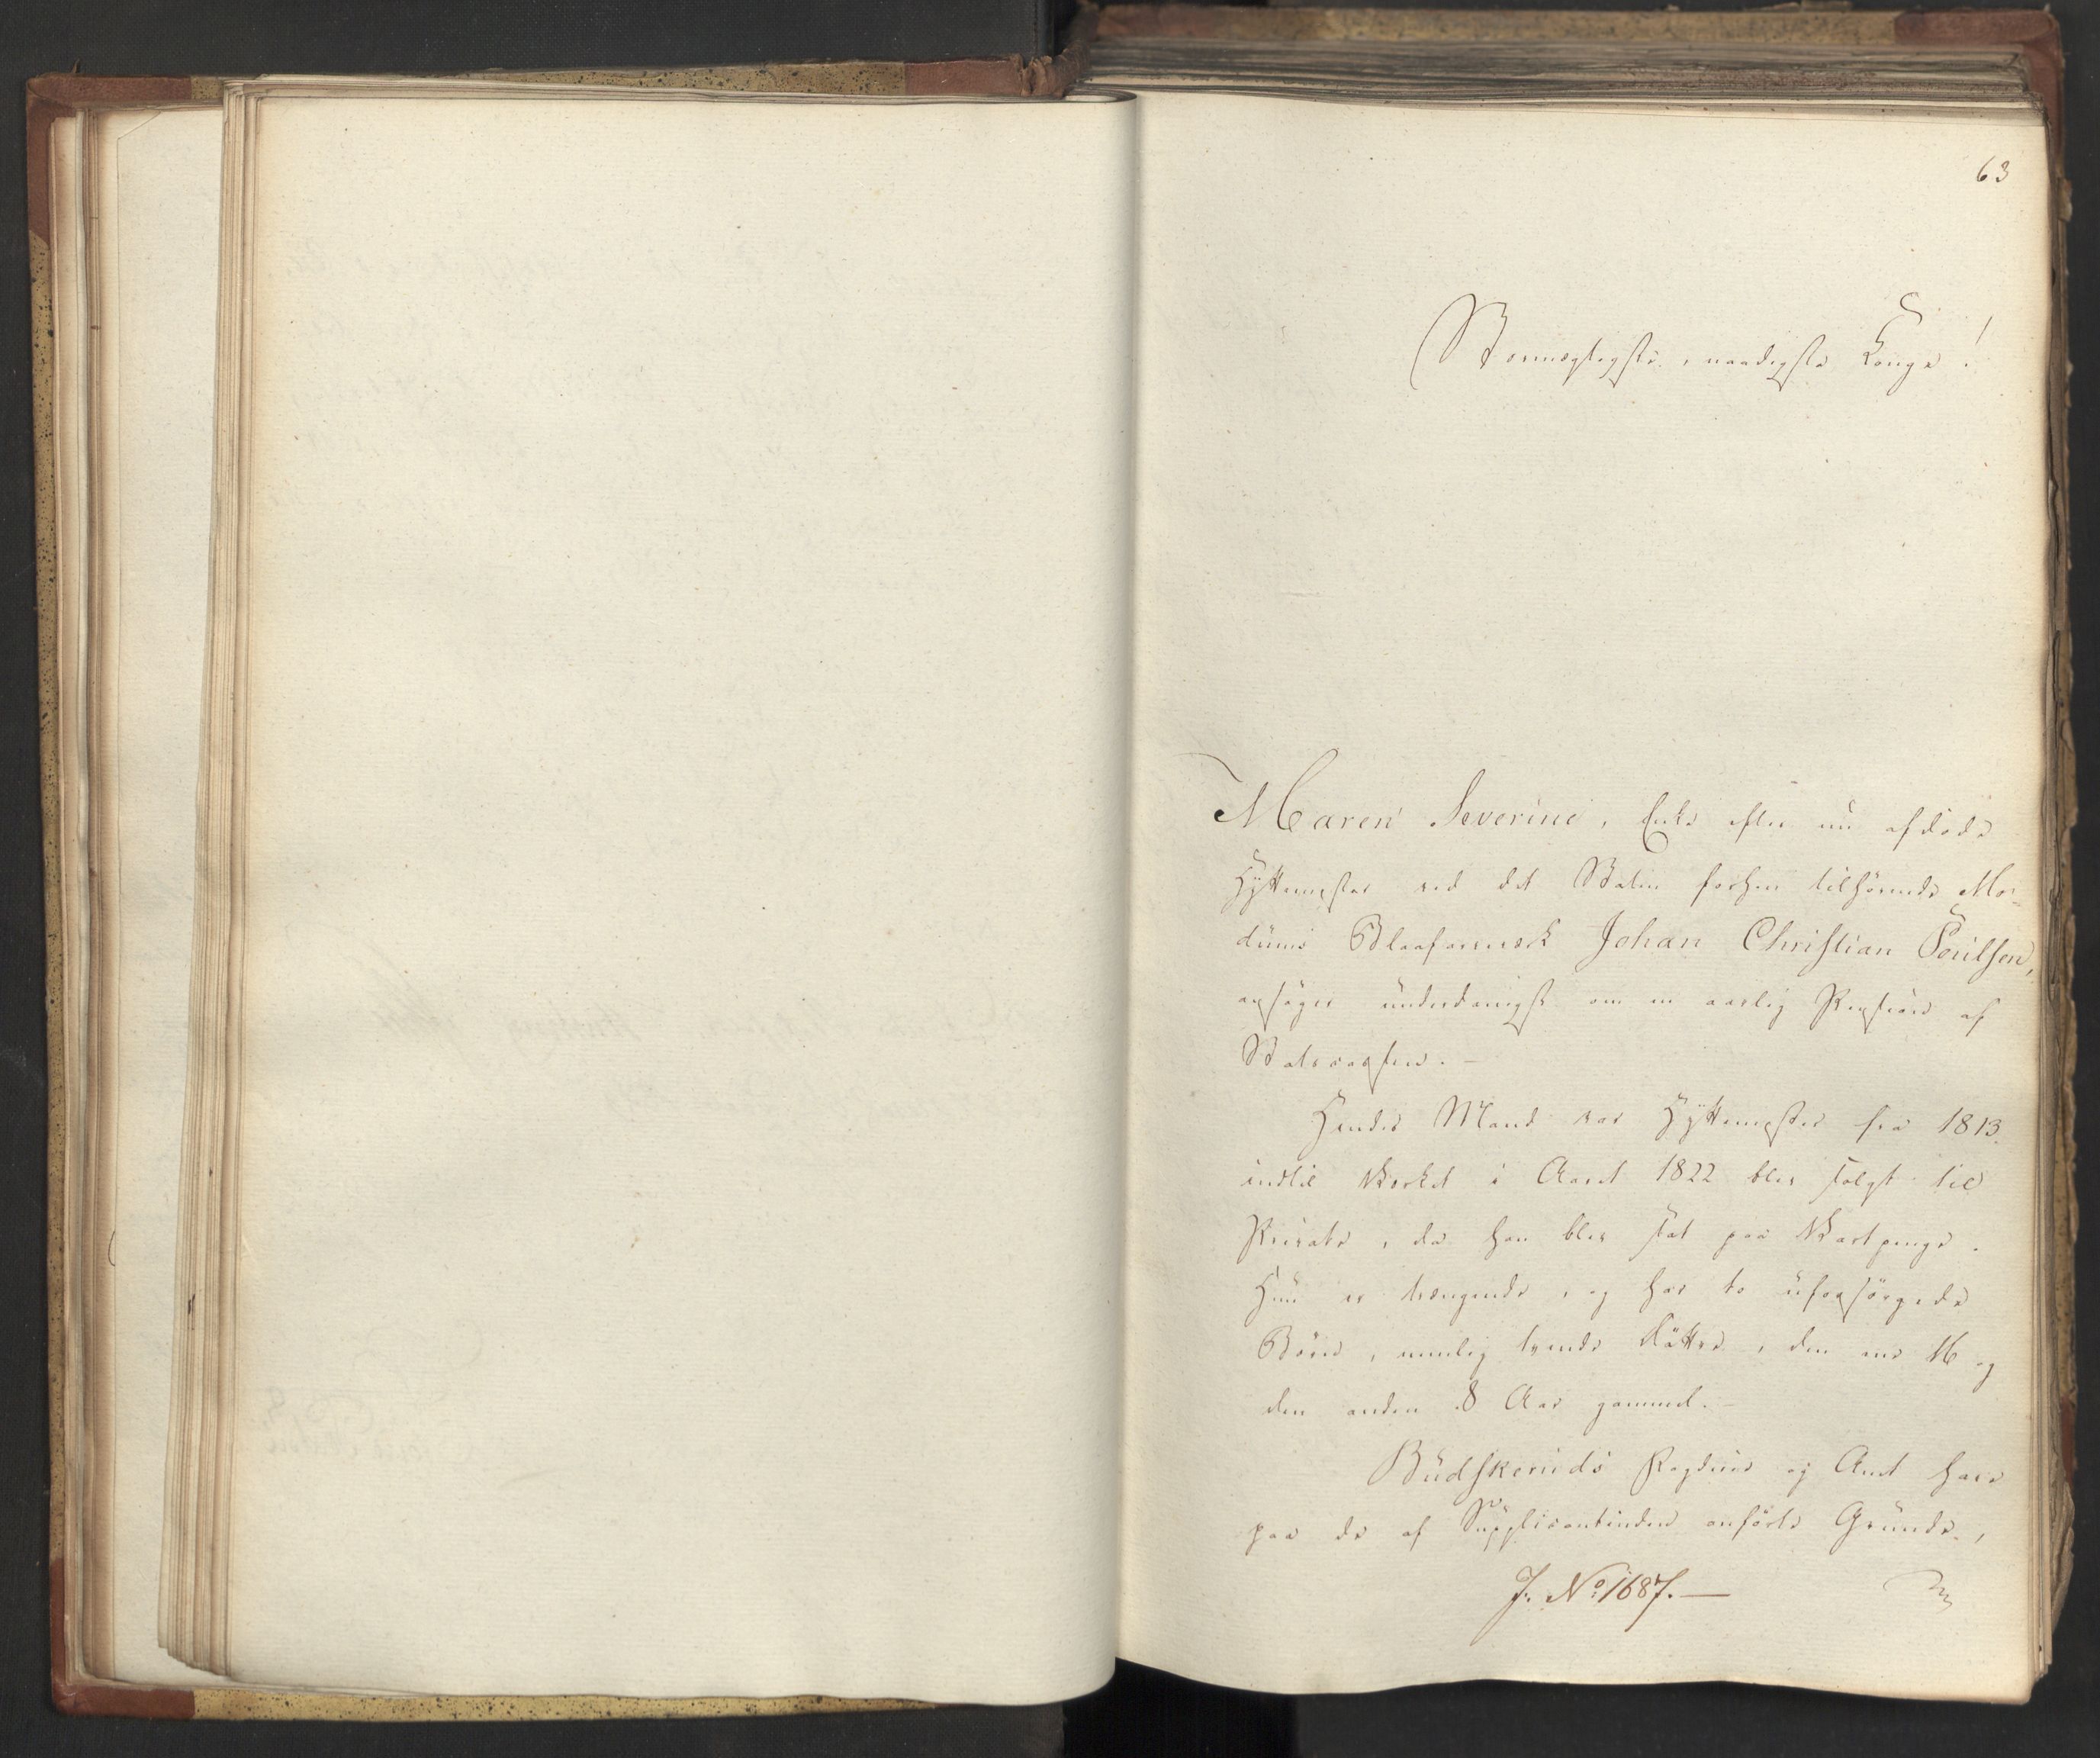 63
Stormægtigste, naadigste Konge!
Maren Severine, Enke efter nu afdøde
Hyttemester ved det Staten forhen tilhørende Mo-
dums Blaafarveværk Johan Christian Poulsen,
ansøger underdanigst om en aarlig Pension af
Statscassen. -
Hendes Mand var Hyttemester fra 1813
indtil Værket i Aaret 1822 blev solgt til
Private, da han blev sat paa Vartpenge.
Hun er trængende, og har to uforsørgede
Børn, nemlig tvende Døttre, den ene 16 og
den anden 8 Aar gammel. -
Budskeruds Regning og Amt have
paa de af Supplicantinden anførte Grunde,
J. No 1687. -